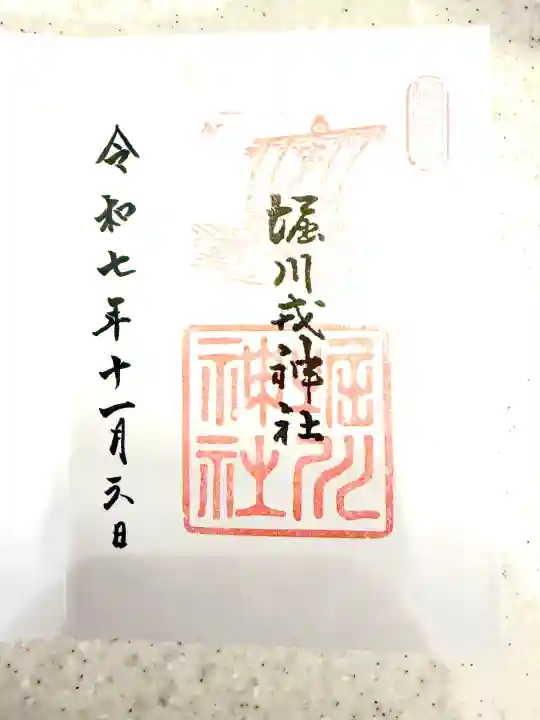 堀川戎神社
堀川
神社
令和七年十一月六日